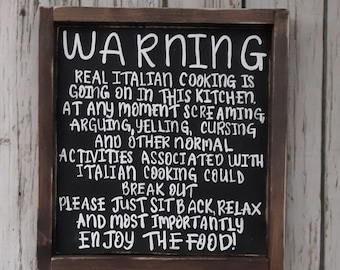 WARNING
REAL ITALIAN COOKING IS
GOING ON IN THIS KITCHEN.
AT ANY MOMENT SCREAMING,
ARGUING, YELLING, CURSING
AND OTHER NORMAL
ACTIVITIES ASSOCIATED WITH
ITALIAN COOKING COULD
BREAK OUT
PLEASE JUST SIT BACK, RELAX
AND MOST IMPORTANTLY
ENJOY THE FOOD!